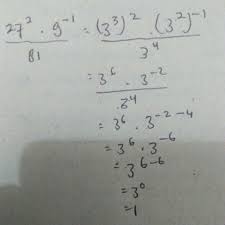 27² · 9⁻¹ / 81 = (3³)² · (3²)⁻¹ / 3⁴
= 3⁶ · 3⁻² / 3⁴
= 3⁶ · 3⁻²⁻⁴
= 3⁶ · 3⁻⁶
= 3⁶⁻⁶
= 3⁰
= 1